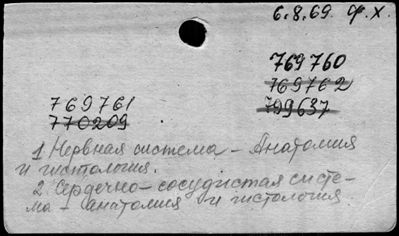 6.8.69. ф.х.
769760
769762
799637
769761
770209
1 Нервная система – Анатомия
и гистология.
2 Сердечно-сосудистая систе-
ма – анатомия и гистология.